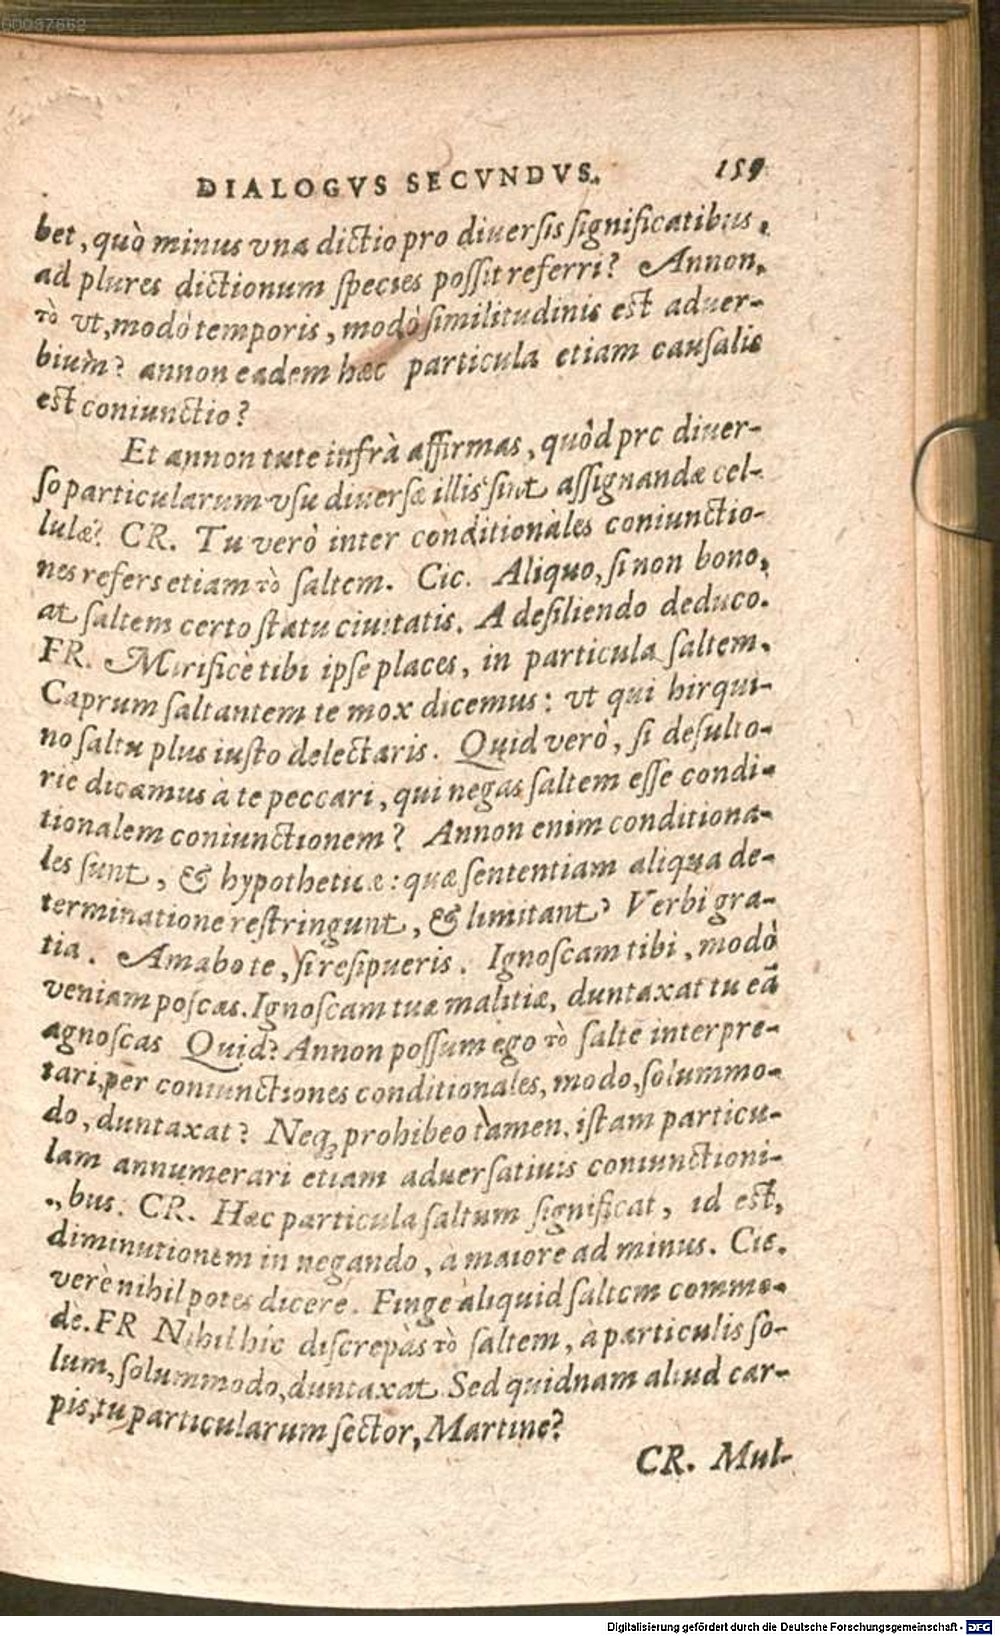 00037662
DIALOGVS SECVNDVS. 159
bet, quò minus vna dictio pro diuersis significatibus,
ad plures dictionum species possit referri? Annon,
τὸ vt, modò temporis, modò similitudinis est aduer-
bium? annon eadem hæc particula etiam causalis
est coniunctio?
Et annon tute infrà affirmas, quòd pro diuer-
so particularum vsu diuersæ illis sint assignandæ cel-
lulæ? CR. Tu verò inter conditionales coniunctio-
nes refers etiam τὸ saltem. Cic. Aliquo, si non bono,
at saltem certo statu ciuitatis. A desiliendo deduco.
FR. Mirificè tibi ipse places, in particula saltem.
Caprum saltantem te mox dicemus: vt qui hirqui-
no saltu plus iusto delectaris. Quid verò, si desulto-
riè dicamus à te peccari, qui negas saltem esse condi-
tionalem coniunctionem? Annon enim conditiona-
les sunt, & hypotheticæ: quæ sententiam aliqua de-
terminatione restringunt, & limitant? Verbi gra-
tia. Amabo te, si resipueris. Ignoscam tibi, modò
veniam poscas. Ignoscam tuæ malitiæ, duntaxat tu eã
agnoscas Quid? Annon possum ego τὸ saltẽ interpre-
tari, per coniunctiones conditionales, modo, solummo-
do, duntaxat? Neq; prohibeo tamen, istam particu-
lam annumerari etiam aduersatiuis coniunctioni-
bus. CR. Hæc particula saltum significat, id est,
diminutionem in negando, à maiore ad minus. Cic.
verè nihil potes dicere. Finge aliquid saltem commo-
dè. FR Nihil hîc discrepàs τὸ saltem, à particulis so-
lum, solummodo, duntaxat. Sed quidnam aliud car-
pis, tu particularum sector, Martine?
CR. Mul-
Digitalisierung gefördert durch die Deutsche Forschungsgemeinschaft - DFG